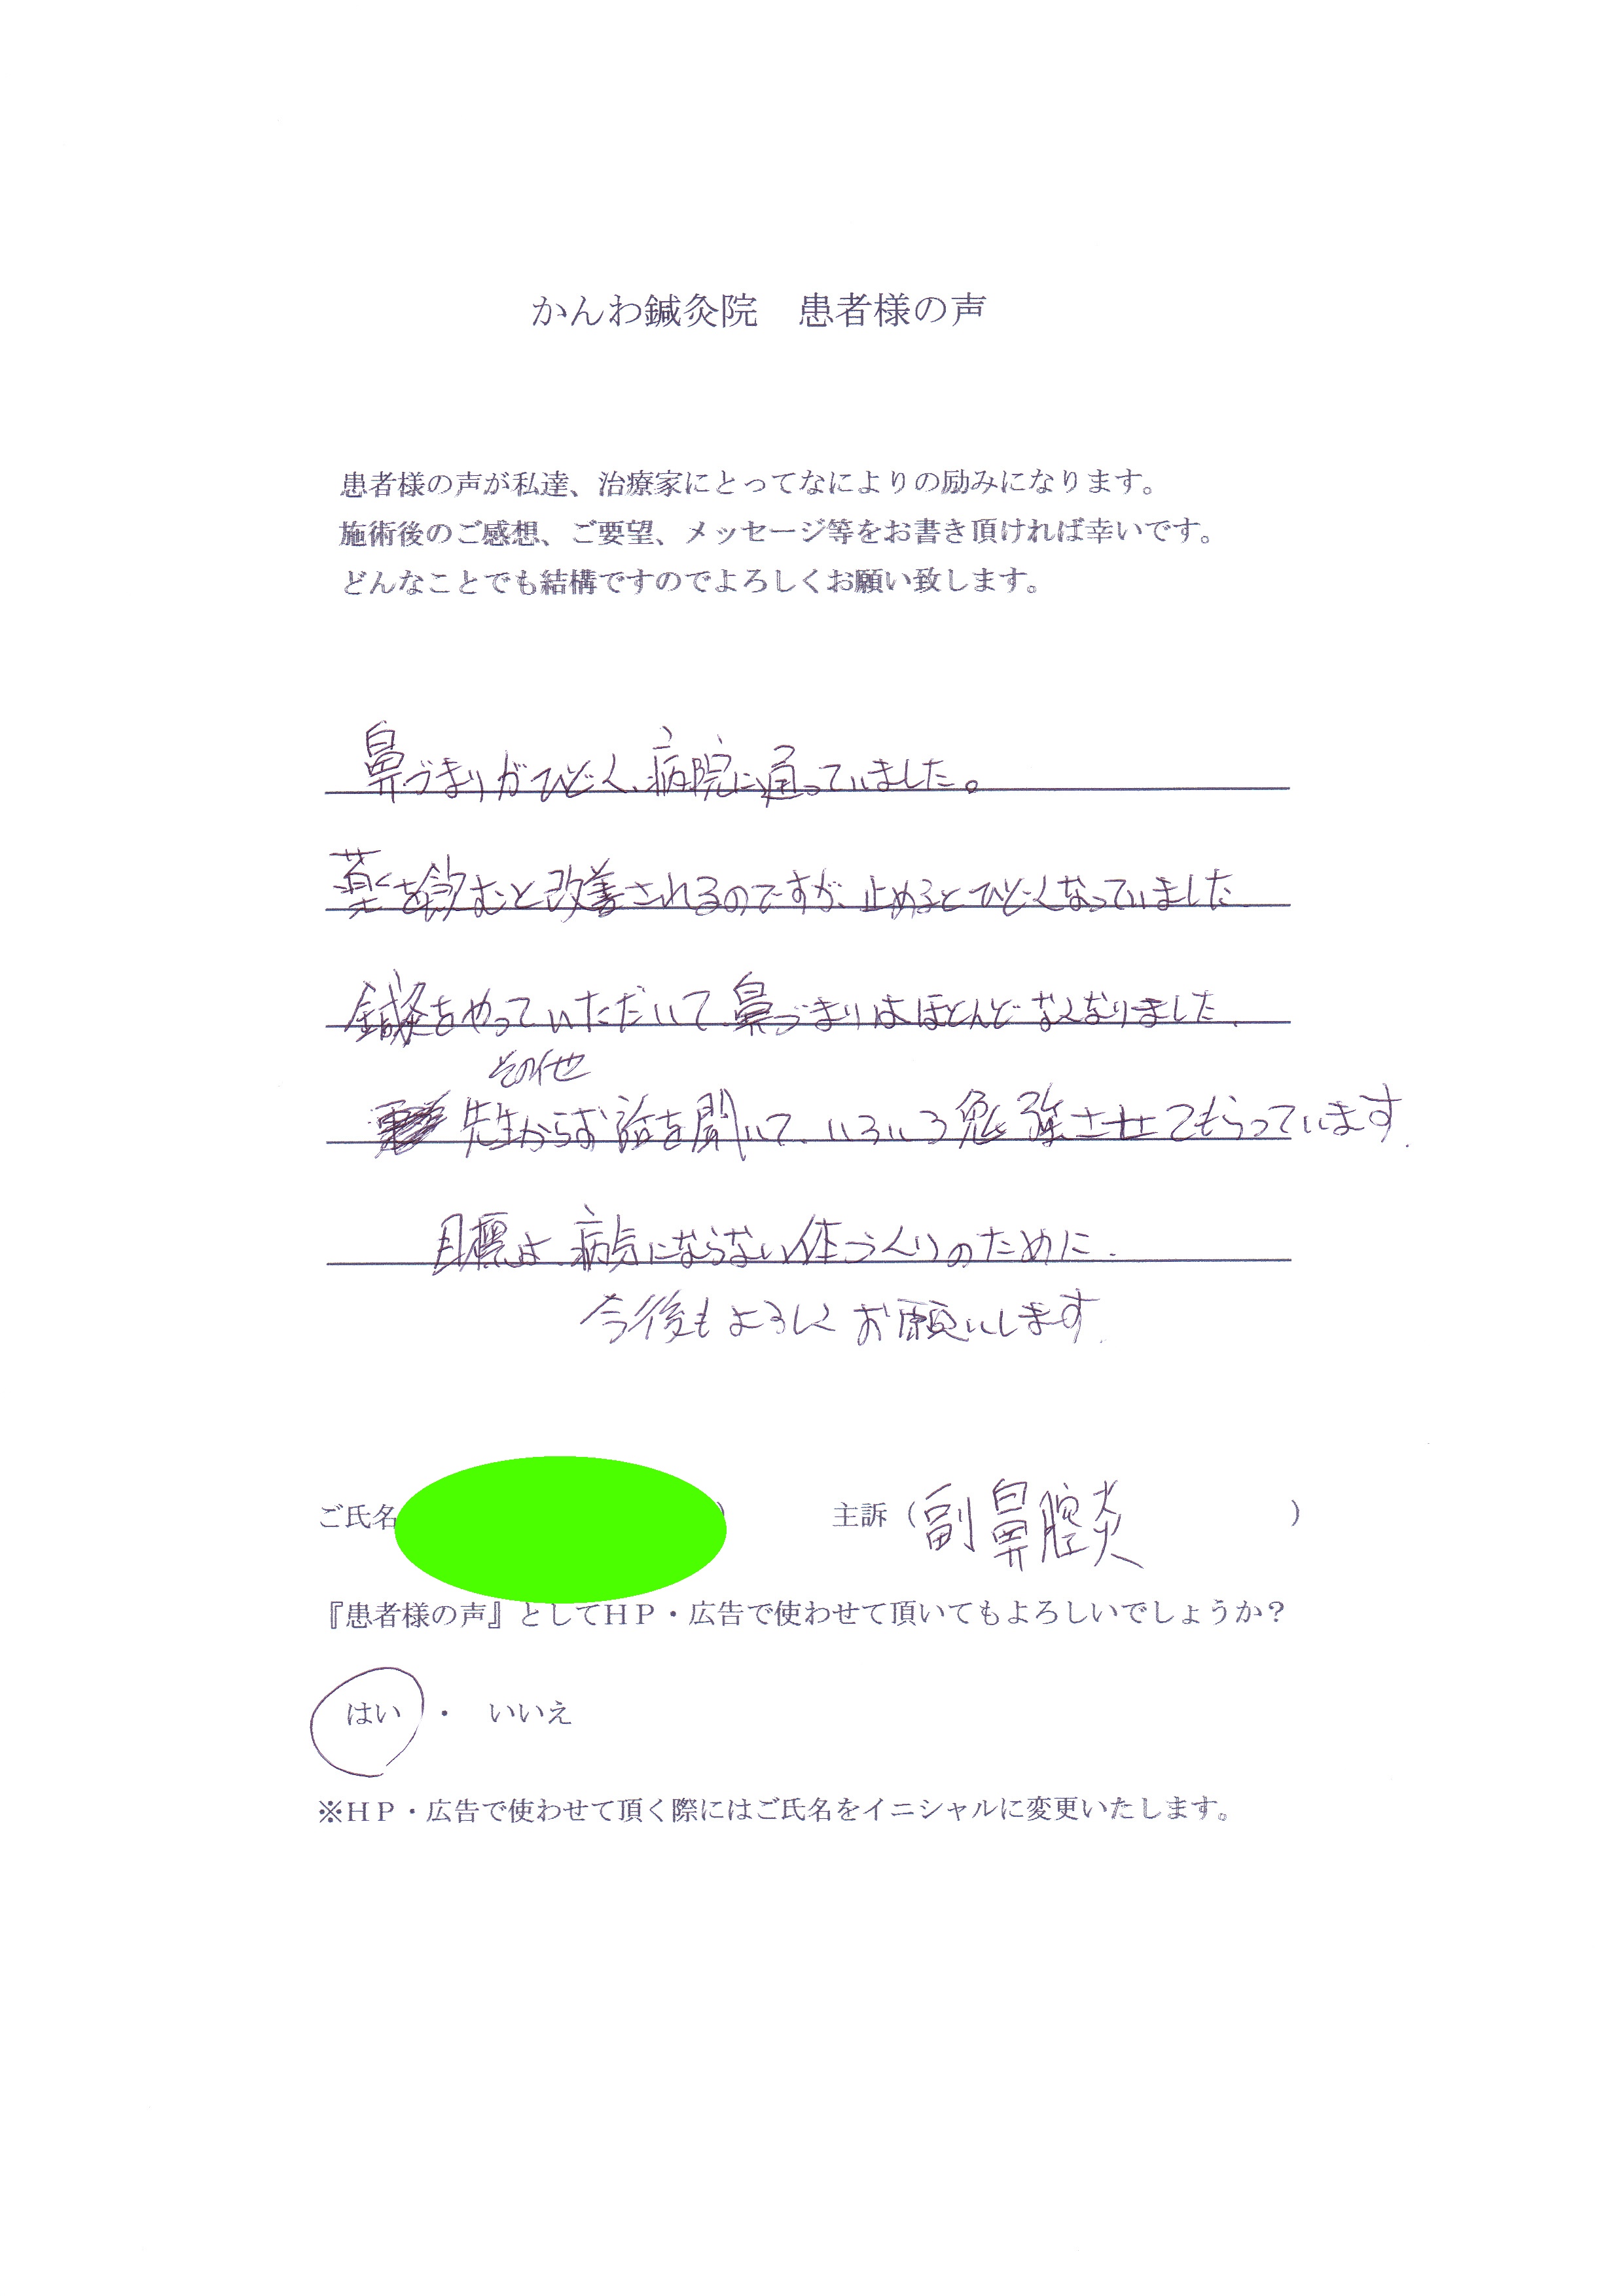 かんわ鍼灸院　患者様の声
患者様の声が私達、治療家にとってなによりの励みになります。
施術後のご感想、ご要望、メッセージ等をお書き頂ければ幸いです。
どんなことでも結構ですのでよろしくお願い致します。
鼻づまりがひどく、病院に通っていました。
薬を飲むと改善されるのですが、止めるとひどくなっていました
鍼灸をやっていただいて、鼻づまりはほとんどなくなりました.
その他
先生からお話を聞いて、いろいろ勉強させてもらっています.
目標は、病気にならない体づくりのために.
今後もよろしくお願いします.
ご氏名　）　主訴（副鼻腔炎　）
『患者様の声』としてＨＰ・広告で使わせて頂いてもよろしいでしょうか？
はい　・　いいえ
※ＨＰ・広告で使わせて頂く際にはご氏名をイニシャルに変更いたします。